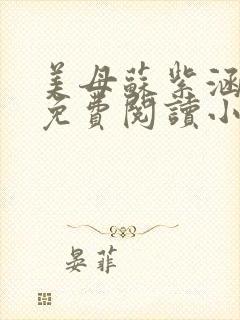 美母蘇紫涵
免費閱讀小
晏菲